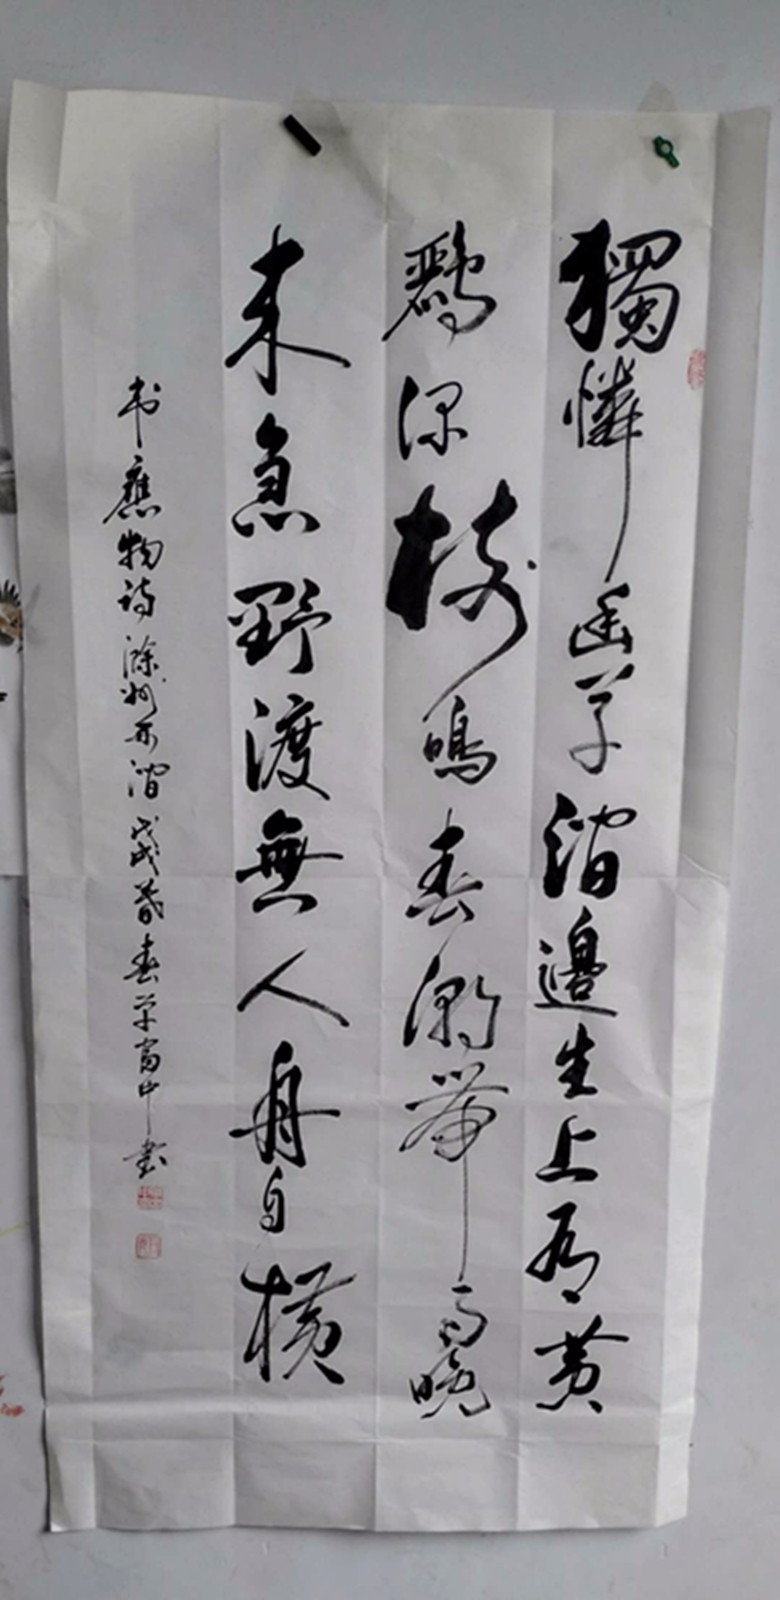 獨憐幽草澗邊生上有黄
鸝深樹鳴春潮帶雨晚
来急野渡無人舟自横
书應物诗滁州西澗戊戌暮春富中書